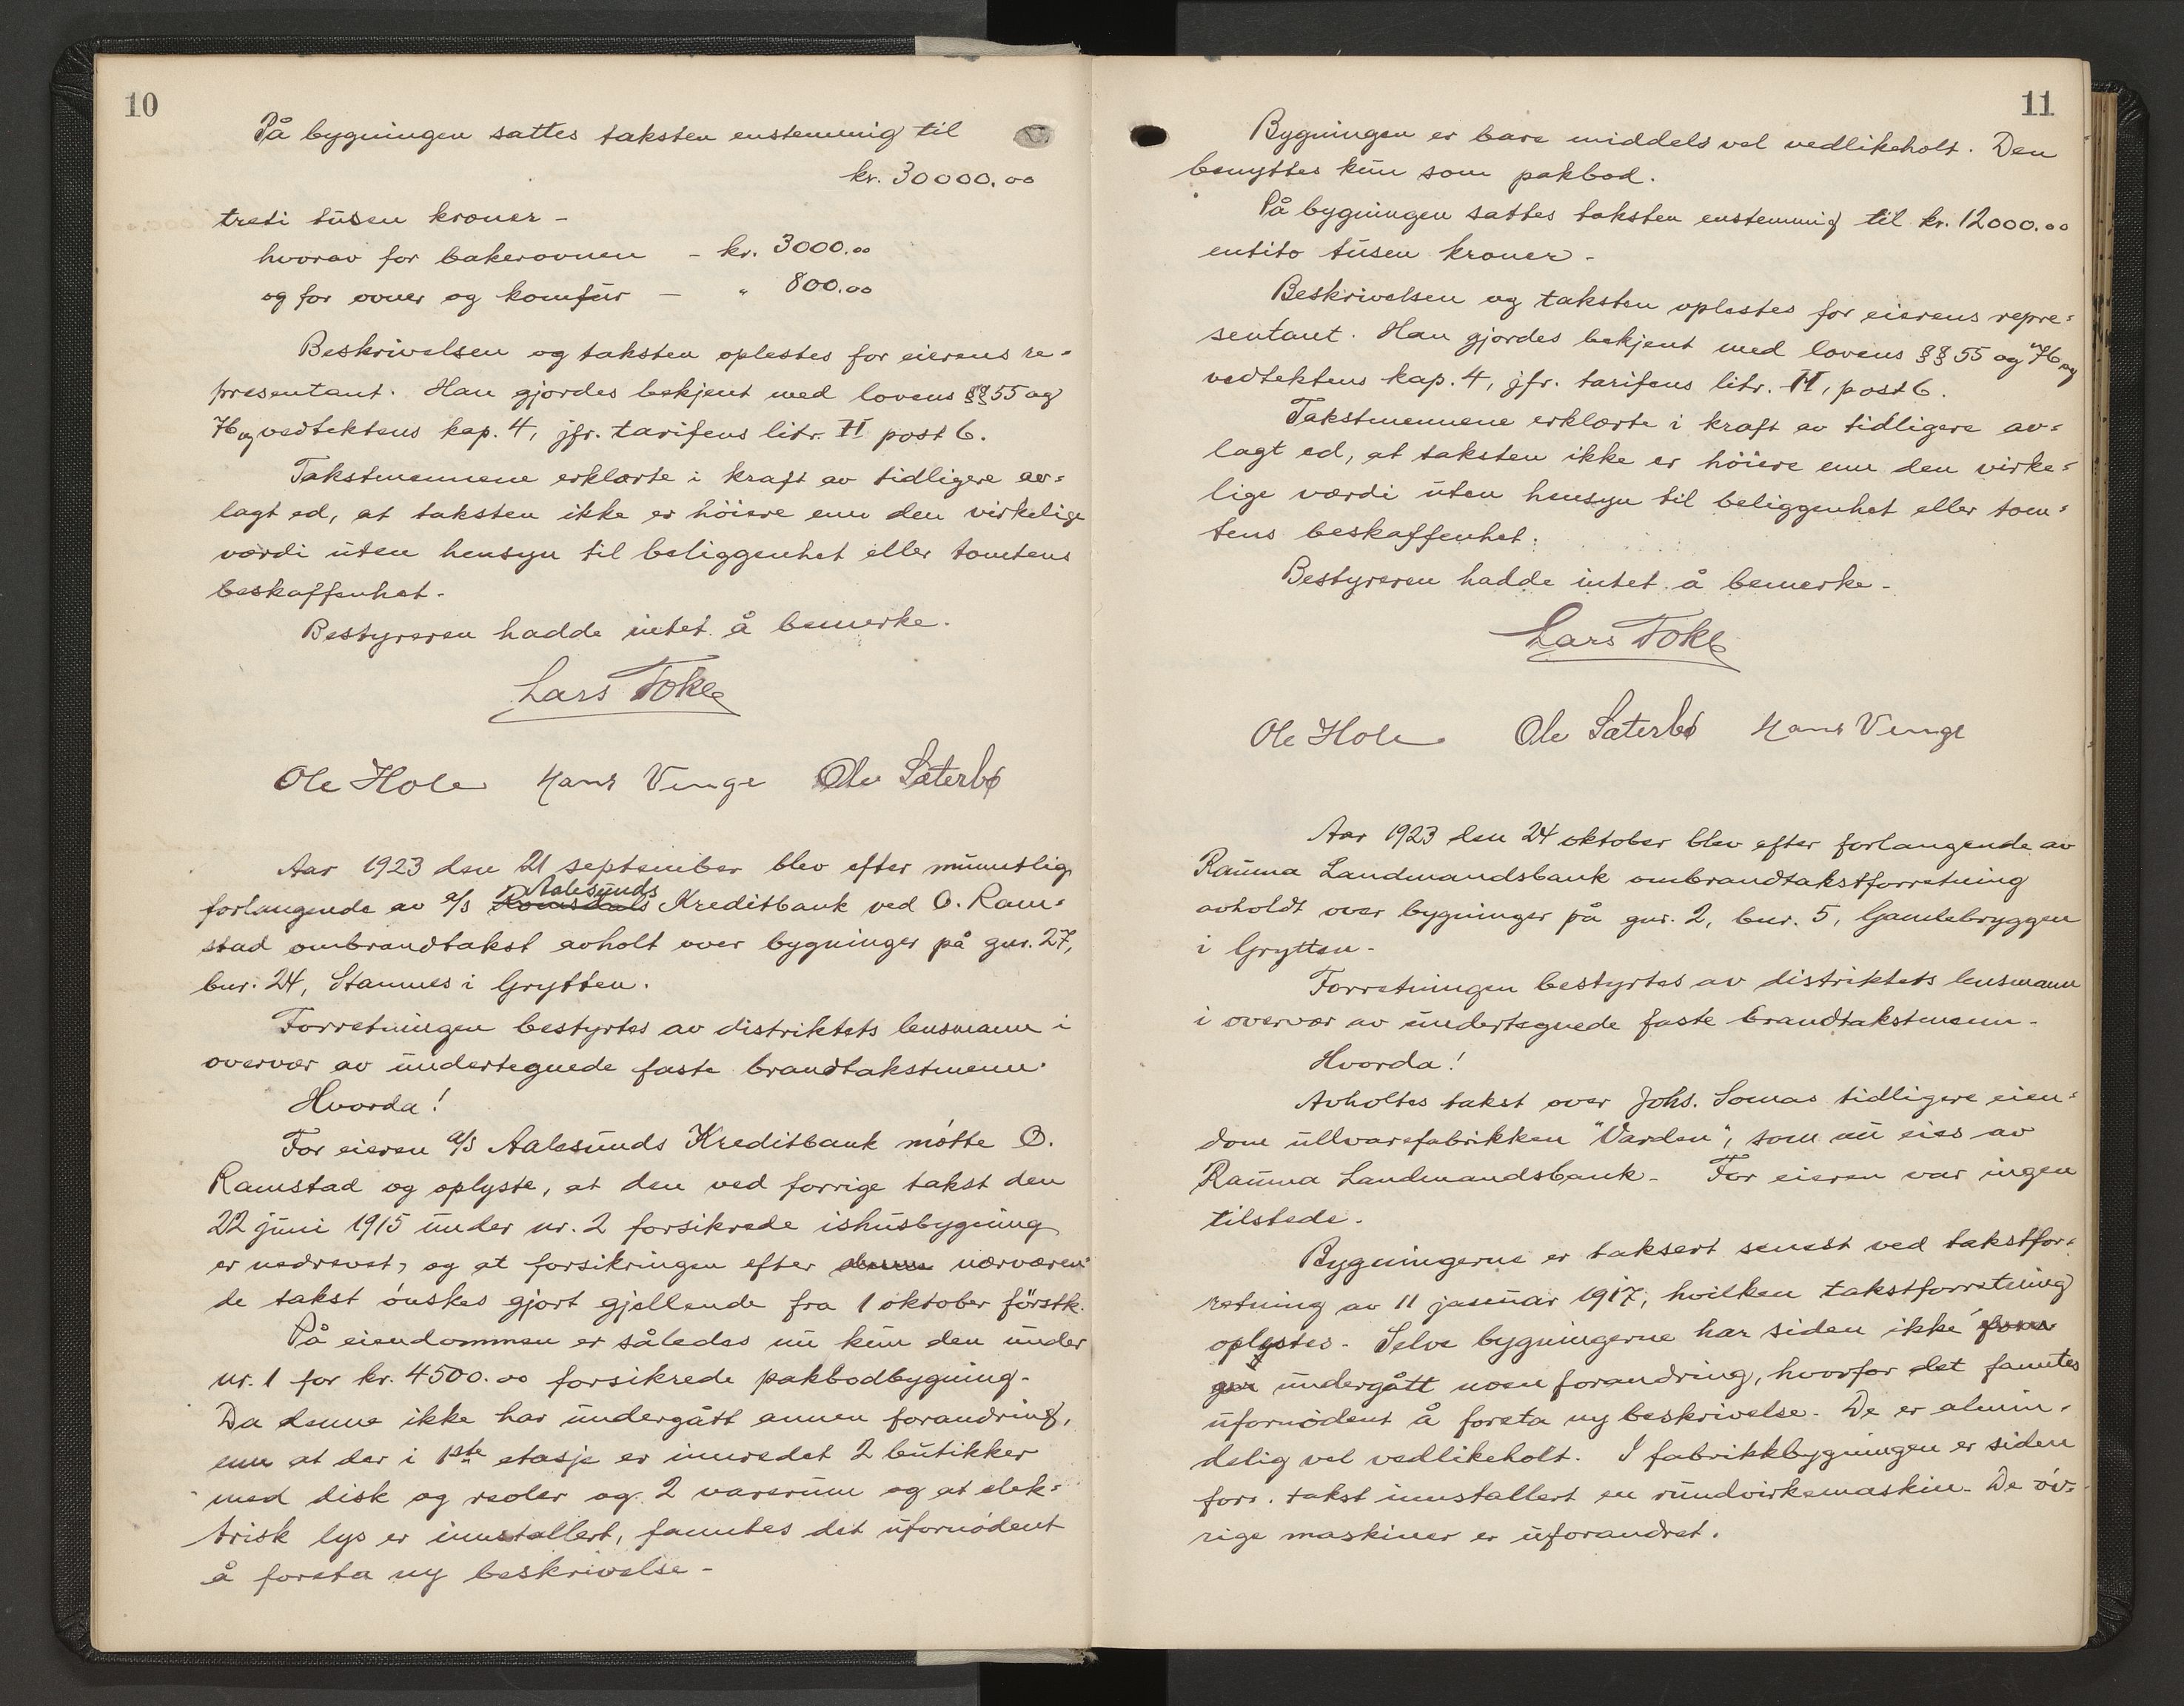 10
På bygningen sattes taksten enstemmig til
kr. 30000.00
treti tusen kroner -
hvorav for bakerovnen - kr. 3000.00
og for ovner og komfür - " 800.00
Beskrivelsen og taksten oplestes for eierens re=
presentant. Han gjordes bekjent med lovens §§ 55 og
76 og vedtektens kap. 4, jfr. tarifens litr. H post 6.
Takstmennene erklærte i kraft av tidligere av=
lagt ed, at taksten ikke er höiere enn den virkelige
værdi uten hensyn til beliggenhet eller tomtens
beskaffenhet.
Bestyreren hadde intet å bemerke.
Lars Tokle
Ole Hole Hans Venge Ole Sæterbø
Aar 1923 den 21 september blev efter mundtlig
forlangende av a/s Romsdals Aalesunds Kreditbank ved O. Ram=
stad ombrandtakst avholt over bygninger på gnr. 27,
bnr. 24, Stamnes i Grytten.
Forretningen bestyrtes av distriktets lensmann i
overvær av undertegnede faste brandtakstmenn.
Hvorda!
For eieren a/s Aalesunds Kreditbank mötte O.
Ramstad og oplyste, at den ved forrige takst den
22 juni 1915 under nr. 2 forsikrede ishusbygning
er nedrevet, og at forsikringen efter denne nærværen=
de takst önskes gjort gjellende fra 1 oktober förstk.
På eiendommen er således nu kun den under
nr. 1 for kr. 4500.00 forsikrede pakbodbygning.
Da denne ikke har undergått annen forandring,
enn at der i 1ste etasje er innredet 2 butikker
med disk og reoler og 2 varerum og at elek=
trisk lys er innstallert, fanntes det ufornödent
å foreta ny beskrivelse -
11
Bygningen er bare middels vel vedlikeholt. Den
benyttes kun som pakbod.
På bygningen sattes taksten enstemmig til kr. 12000.00
entito tusen kroner -
Beskrivelsen og taksten oplestes for eierens repre=
sentant. Han gjordes bekjent med lovens §§ 55 og 76 og
vedtektens kap. 4, jfr. tarifens litr. H, post 6.
Takstmennene erklærte i kraft av tidligere av=
lagt ed, at taksten ikke er höiere enn den virke=
lige værdi uten hensyn til beliggenhet eller tom=
tens beskaffenhet.
Bestyreren hadde intet å bemerke -
Lars Tokle
Ole Hole Ole Sæterbø Hans Venge
Aar 1923 den 24 oktober blev efter forlangende av
Rauma Landmandsbank ombrandtakstforretning
avholdt over bygninger på gnr. 2, bnr. 5, Gamlebryggen
i Grytten -
Forretningen bestyrtes av distriktets lensmann
i overvær av undertegnede faste brandtakstmenn -
Hvorda!
Avholtes takst over Johs. Somas tidligere eien=
dom ullvarefabrikken "Varden", som nu eies av
Rauma Landmandsbank - For eieren var ingen
tilstede.
Bygningerne er taksert senest ved takstfor=
retning av 11 januar 1917, hvilken takstforretning
oplestes - Selve bygningerne har siden ikke
undergått noen forandring, hvorfor det fanntes
ufornödent å foreta ny beskrivelse - De er almin=
delig vel vedlikeholt. I fabrikkbygningen er siden
forr. takst innstallert en rundvirkemaskin - De öv=
rige maskiner er uforandret.